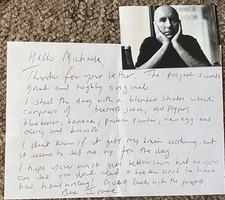 Hello Michaela
Thanks for your letter. The project sounds
great and highly original.
I start the day with a blended shake which
comprises of beetroot juice, red pepper,
blueberries, banana, protein powder, raw egg and
celery and broccoli
I don't know if it gets my brain working, but
it seems to set me up for the day
I hope your wrist gets better soon but as you
can see you don't need a broken wrist to have
bad handwriting. Good luck with the project.
Best